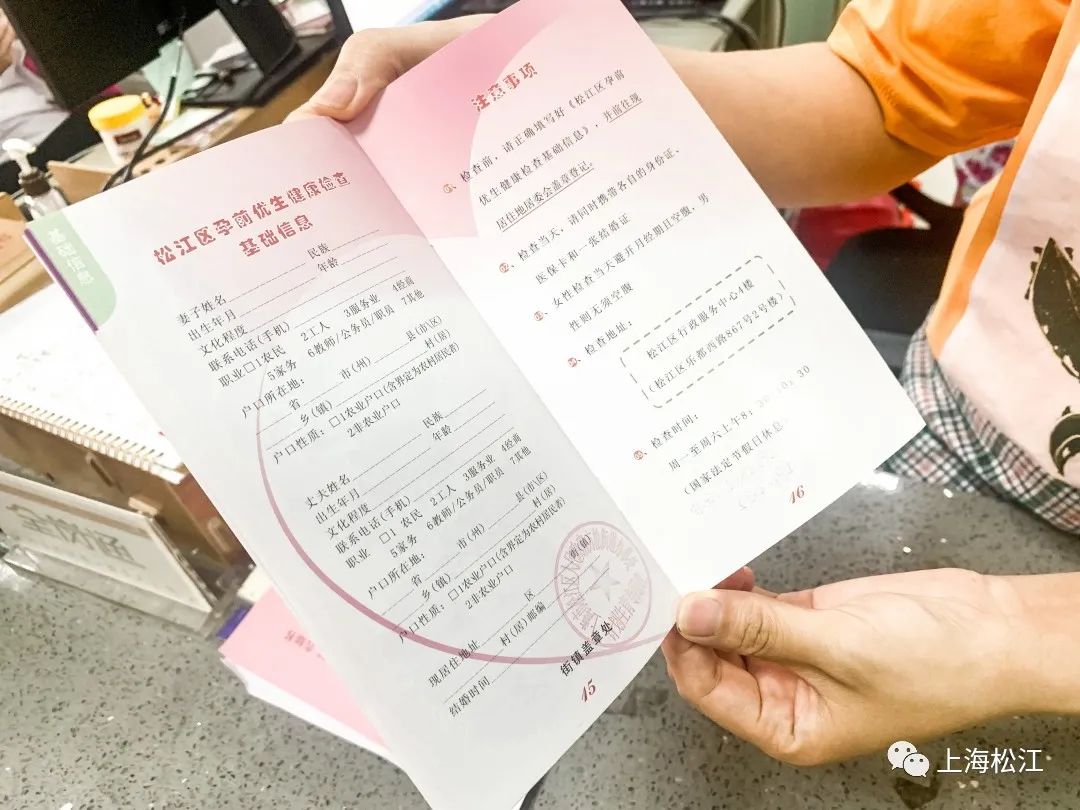 基础信息
松江区孕前优生健康检查
基础信息
妻子姓名 民族
出生年月 年龄
文化程度
联系电话(手机)
职业□1农民 2.工人 3服务业 4经商
5家务 6教师/公务员/职员 7其他
户口所在地:
省 市(州) 县(市\区)
乡(镇) 村(居)
户口性质: □1农业户口(含界定为农村居民者)
2非农业户口
丈夫姓名 民族
出生年月 年龄
文化程度
联系电话(手机)
职业 □1 农民 2.工人 3服务业 4经商
5家务 6教师/公务员/职员 7其他
户口所在地:
省 市(州) 县(市\区)
乡(镇) 村(居)
户口性质: □1农业户口(含界定为农村居民者)
2非农业户口
现居住地址 区 街(镇)
村(居)邮编
结婚时间
街镇盖章处
15
注意事项
①、检查前，请正确填写好《松江区孕前
优生健康检查基础信息》，并前往现
居住地居委会盖章登记。
②、检查当天，请同时携带各自的身份证、
医保卡和一张结婚证
③、女性检查当天避开月经期且空腹，男
性则无须空腹
④、检查地址：
松江区行政服务中心4楼
（松江区乐都西路867号2号楼）
⑤、检查时间：
周一至周六上午8：30 10：30
（国家法定节假日休息
16
上海松江